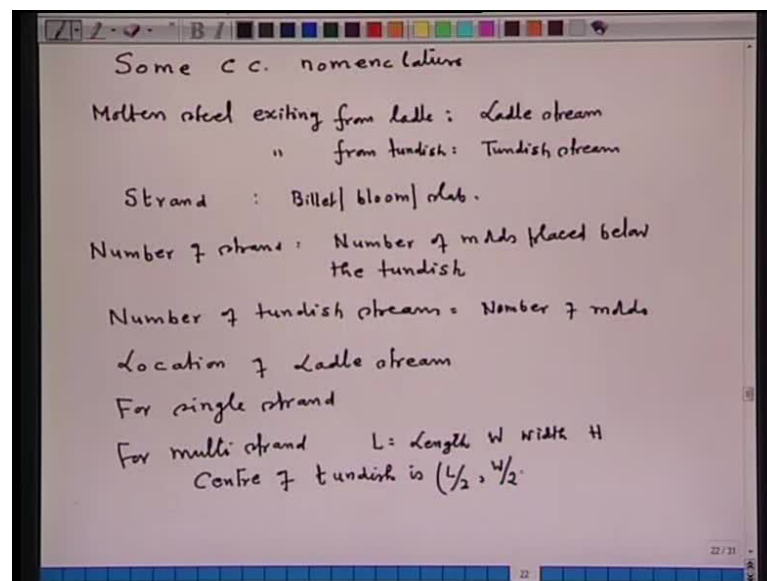 B I
Some c c. nomenclature
Molten steel exiting from ladle : Ladle stream
" from tundish : Tundish stream
Strand : Billet | bloom | slab.
Number of strand : Number of molds placed below
the tundish
Number of tundish stream = Number of molds
Location of Ladle stream
For single strand
For multi strand L = Length W width H
Centre of tundish is (L/2, W/2.
22/31
22